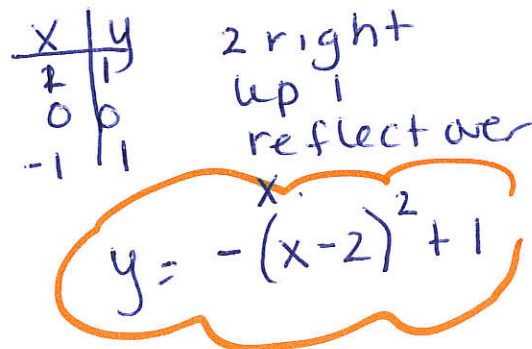 x | y
1 | 1
0 | 0
-1 | 1
2 right
up 1
reflect over
x.
y = -(x-2)² + 1